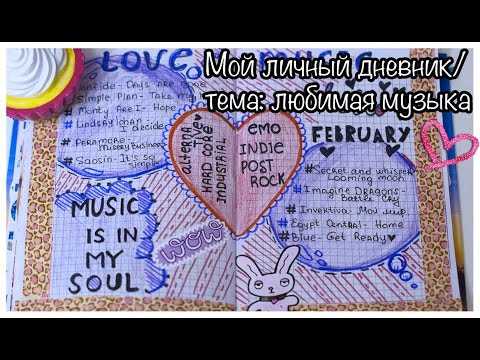 Мой личный дневник/
тема: любимая музыка
LOVE
- Days Are Gone
# Simple Plan - Take My
# Monty Are I - Hope
# Lindsay Lohan -
I decide
# Peramore -
Misery Business
# Saosin - It's so
simple
MUSIC
IS IN
MY
SOUL
HARD CORE
INDUSTRIAL
EMO
INDIE
POST
ROCK
WOW
FEBRUARY
#Secret and whisper
Looming moon
#Imagine DRAGONS -
Battle Cry
#Invektiva - Мой мир
#Egypt Central - Home
#Blue - Get Ready♥